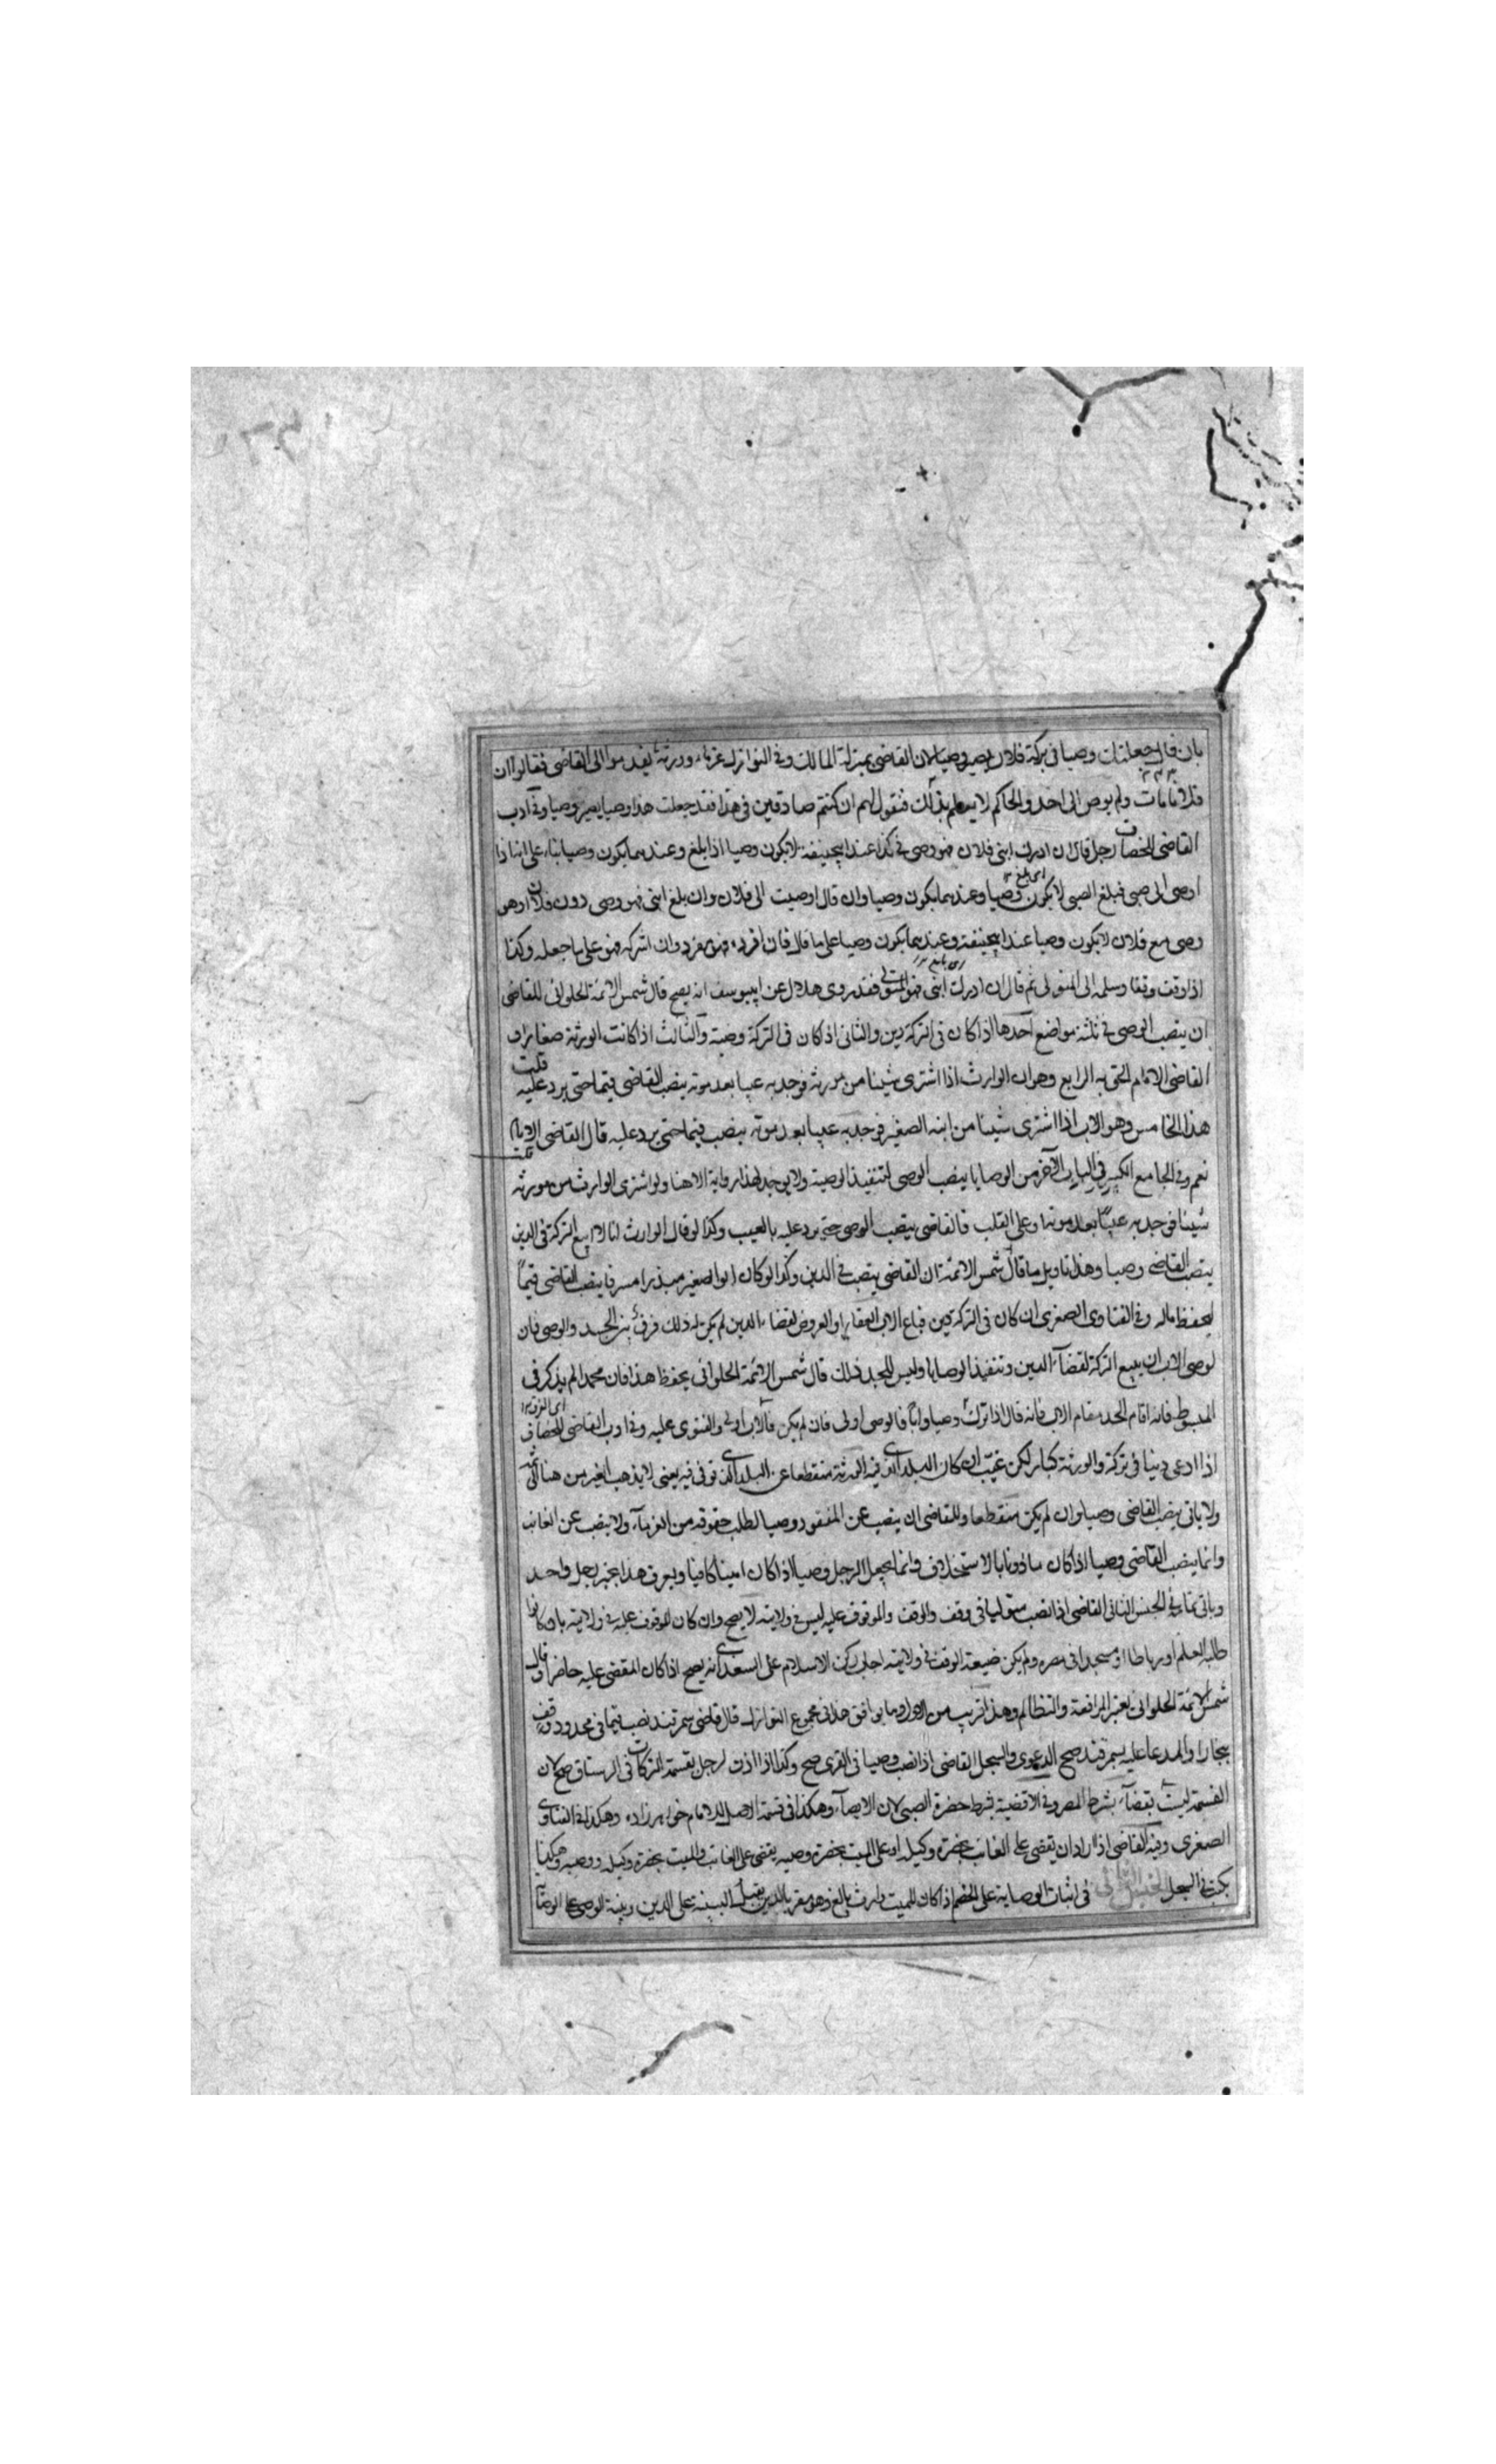 بان قال جعلتك وصيا فى تركة فلان يصير وصيا لان القاضى بمنزلة المالك وفى النوازل غرماء وورثة تقدموا الى القاضى فقالوا ان
فلانا مات ولم يوص الى احد والحاكم لا يعلم بذلك فنقول لهم ان كنتم صادقين فى هذا فقد جعلت هذا وصيا يصير وصيا وفى ادب
القاضى للخصاف رجل قال ان ادرك ابنى فلان فهو وصى فى كذا عند ابيحنيفة لا يكون وصيا اذا بلغ وعندهما يكون وصيا بناء على انه اذا
اوصى الى صبى فبلغ الصبى لا يكون وصيا وعندهما يكون وصيا وان قال اوصيت الى فلان وان بلغ ابنى فهو وصى دون فلان او هو
وصى مع فلان لا يكون وصيا عند ابيحنيفة وعندهما يكون وصيا على ما قال فان افرده فهو مفرد وان اشركه فهو على ما جعله وكذا
اذا وقف وقفا وسلمه الى المتولى ثم قال ان ادرك ابنى فهو المتولى فقد روى هلال عن ابييوسف انه يصح قال شمس الائمة الحلوانى للقاضى
ان ينصب الوصى فى ثلثة مواضع احدها اذا كان فى التركة دين والثانى اذا كان فى التركة وصية والثالث اذا كانت الورثة صغارا
القاضى الامام الحق به الرابع وهو ان الوارث اذا اشترى شيئا من مورثه فوجد به عيبا بعد موته ينصب القاضى قيما حتى يرد عليه قلت
هذا الخامس وهو الاب اذا اشترى شيئا من ابنه الصغير فوجد به عيبا بعد موته ينصب قيما حتى يرد عليه قال القاضى الامام
نعم وفى الجامع الكبير فى الباب الآخر من الوصايا ينصب الوصى لتنفيذ الوصية ولا يوجد لهذا رواية الا هنا ولو اشترى الوارث من مورثه
شيئا فوجد به عيبا بعد موته او على القلب فالقاضى ينصب الوصى حتى يرد عليه بالعيب وكذا لو قال الوارث انا لا ابيع التركة فى الدين
ينصب القاضى وصيا وهذا تاويل ما قال شمس الائمة ان القاضى ينصب فى الدين وكذا لو كان ابو الصغير مبذرا مسرفا ينصب القاضى قيما
ليحفظ ماله وفى الفتاوى الصغرى ان كان فى التركة دين فباع الاب العقار او العروض لقضاء الدين لم يكن له ذلك فرق بين الجد والوصى فان
لوصى الاب ان يبيع التركة لقضاء الدين وتنفيذ الوصايا وليس للجد ذلك قال شمس الائمة الحلوانى يحفظ هذا فان محمدا لم يذكر فى
المبسوط فانه اقام الجد مقام الاب فانه قال اذا ترك وصيا وابا فالوصى اولى فان لم يكن فالاب اولى والفتوى عليه وفى ادب القاضى للخصاف
اذا ادعى دينا فى تركة والورثة كبار لكن غيب ان كان البلد الذى فيه الورثة منقطعا عن البلد الذى توفى فيه يعنى لا يذهب العير من هنا الى
ولا ياتى ينصب القاضى وصيا وان لم يكن منقطعا وللقاضى ان ينصب عن المفقود وصيا لطلب حقوقه من الغرماء ولا ينصب عن الغائب
وانما ينصب القاضى وصيا اذا كان ماذونا بالاستخلاف وانما يجعل الرجل وصيا اذا كان امينا كافيا ويعرف هذا بخبر رجل واحد
وياتى تمامه فى الجنس الثانى القاضى اذا نصب متوليا فى وقف والوقف والموقوف عليه ليس فى ولايته لا يصح وان كان الموقوف عليه فى ولايته بان كانوا
طلبة العلم او رباطا او مسجدا فى مصره ولم يكن ضيعة الوقف فى ولايته اجاب ركن الاسلام على السغدى انه يصح اذا كان المقضى عليه حاضرا وقال
شمس الائمة الحلوانى يعتبر المرافعة والتظالم وهذا قريب من الاول وما يوافق هذا فى مجموع النوازل قال قاضى سمرقند نصب قيما فى محدود وقف
ببخارا والمدعا عليه بسمرقند صح الدعوى والسجل القاضى اذا نصب وصيا فى القرى صح وكذا اذا اذن لرجل بقسمة التركات فى الرستاق صح لان
القسمة ليست بقضاء بشرط المصر وفى الاقضية يشترط حضرة الصبى لان الايصاء وهكذا فى قسمة الاصل للامام خواهر زاده وهكذا فى الفتاوى
الصغرى وفيه القاضى اذا اراد ان يقضى على الغائب بحضرة وكيله او على الميت بحضرة وصيه يقضى على الغائب والميت بحضرة وكيله ووصيه وهكذا
يكتب فى السجل الجنس الثانى فى اثبات الوصاية على الخصم اذا كان للميت وارث بالغ وهو مقر بالدين يقبل البينة على الدين وبينة الوصى على الوصاية